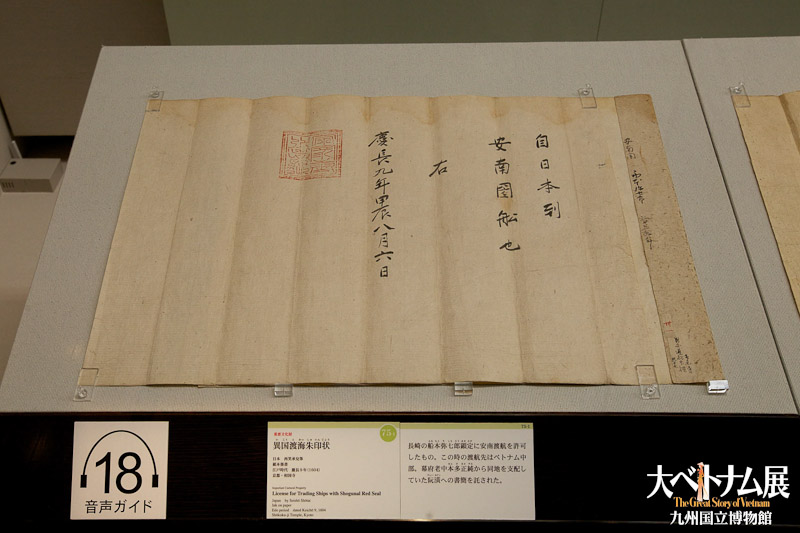 自日本到
安南國舩也
右
慶長九年甲辰八月六日
18
音声ガイド
重要文化財
75-1
異国渡海朱印状
日本 西笑承兌筆
紙本墨書
江戸時代 慶長9年(1604)
京都・相国寺
Important Cultural Property
License for Trading Ships with Shogunal Red Seal
Ink on paper
75-1
長崎の船本弥七郎顕定に安南渡航を許可
したもの。この時の渡航先はベトナム中
部、幕府老中本多正純から同地を支配し
ていた阮潢への書簡を託された。
大ベトナム展
The Great Story of Vietnam
九州国立博物館